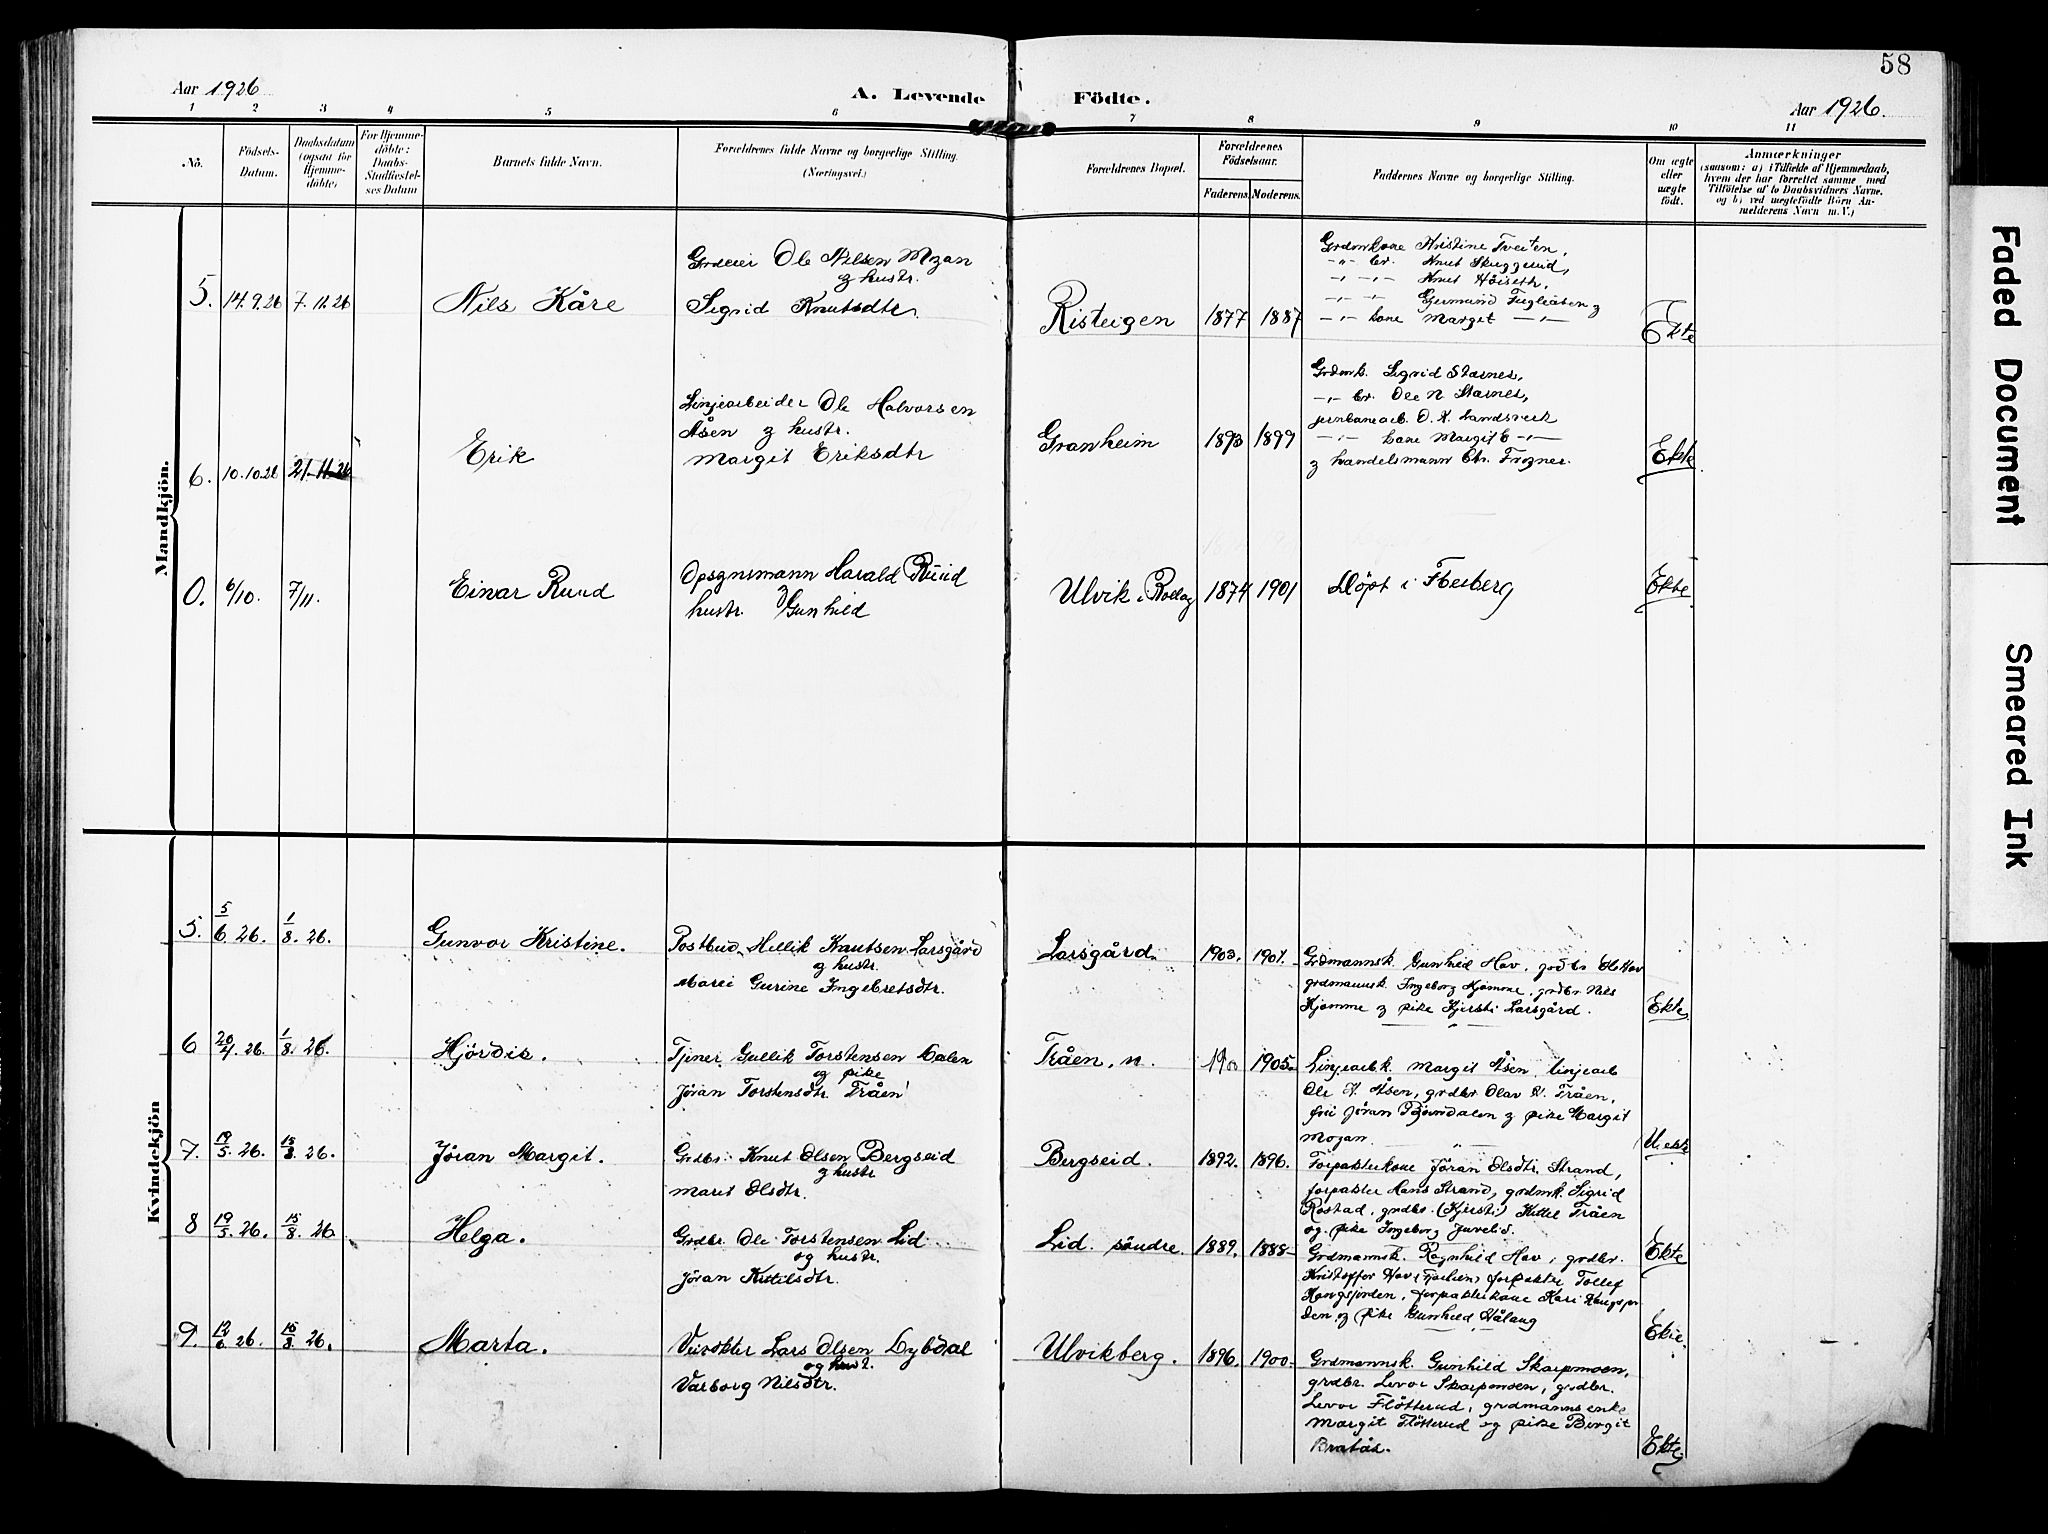 58
Aar 1926
A. Levende Födte.
Aar 1926.
1 2 3 4 5 6 7 8 9 10 11
No.
Födsels-
Datum.
Daabsdatum
(ogsaa for
Hjemme-
döbte)
For Hjemme-
döbte:
Daabs-
Stadfæstel-
ses Datum
Barnets fulde Navn.
Forældrenes fulde Navne og borgerlige Stilling.
(Næringsvei.)
Forældrenes Bopæl.
Forældrenes
Födselsaar.
Faderens. Moderens.
Faddernes Navne og borgerlige Stilling.
Om ægte
eller
uægte
födt.
Anmærkninger
(saasom: a) i Tilfælde af Hjemmedaab,
hvem der har forrettet samme med
Tilföielse af to Daabsvidners Navne.
og b) ved uægtefödte Börn An-
melderens Navn m. V.)
Mandkjön.
5. 14.9.26 7.11.26 Nils Kåre
Grdeier Ole Nilsen Mogan
& hustr.
Sigrid Knutsdtr.
Risteigen 1877 1887
Grdmkone Kristine Tveiten,
-"- br. Knut Skuggerud,
-"- -"- Knut Höiseth,
-"- -"- Germund Fugleåsen &
-"- kone Marget -"-
Ekte
6. 10.10.26 21.11.26 Erik
Linjearbeider Ole Halvorsen
Åsen & hustr.
Margit Eriksdtr
Granheim 1893 1899
Grdmk. Sigrid Starnes,
-"- br. Ole N Starnes,
jernbanearb. O. K. Landsverk
-"- kone Margit E -"-
& handelsmann Chr. Frogner.
Ekte
0. 6/10. 7/11. Einar Ruud
Opsynsmann Harald Ruud
& hustr. Gunhild
Ulvik i Rollag 1874 1901
Döpt i Flesberg
Ekte
Kvindekjön
5. 5/6. 26. 1/8. 26. Gunvor Kristine.
Postbud Hellik Knutsen Larsgård
& hustr.
Marei Gurine Ingebretsdtr.
Larsgård. 1903. 1901.
Grdmannsk. Gunhild Hav, grdbr O Hav
grdmannsk. Ingeborg Kjömme, grdbr Nils
Kjömme & pike Kjersti Larsgård.
Ekte
6 20/4. 26. 1/8. 26. Hjördis.
Tjener Gullik Torstensen Dalen
og pike
Jöran Torstensdtr. Tråen
Tråen, n. 1900 1905
Linjearb.k. Margit Åsen, linjearb
Ole H. Åsen, grdbr Olav K. Tråen,
frü Jöran Björndalen & pike Margit
Mogan.
Uekte
7. 19/5. 26. 15/8. 26. Jöran Margit.
Grdbr. Knut Olsen Bergseid
& hustr
Marit Olsdtr.
Bergseid. 1892. 1896.
Forpakterkone Jöran Olsdtr. Strand,
forpakter Hans Strand, grdmk. Sigrid
Rostad, grdbr. (Kjersti) Kittil Tråen
og pike Ingeborg Juvelid.
Ekte
8 19/5. 26. 15/8. 26 Helga.
Grdbr. Ole Torstensen Lid
og hustr.
Jöran Kittilsdtr.
Lid söndre. 1889. 1888
Grdmannsk. Ragnhild Hav, grdbr.
Kristoffer Hav, forpakter Tollef
Kongsjorden, forpakterkone Kari Kongsjor
den, & pike Gunhild Hålaug
Ekte.
9. 12/6. 26. 15/8. 26. Marta.
Veivokter Lars Olsen Lybdal
og hust.
Valborg Nilsdtr.
Ulvikberg. 1896. 1900
Grdmannsk. Gunhild Skarpmoen,
grdbr. Levor Skarpmoen, grdbr.
Levor Flötterud, grdmanns enke
Margit Flötterud og pike Birgit
Bratås.
Ekte
Faded Document
Smeared Ink